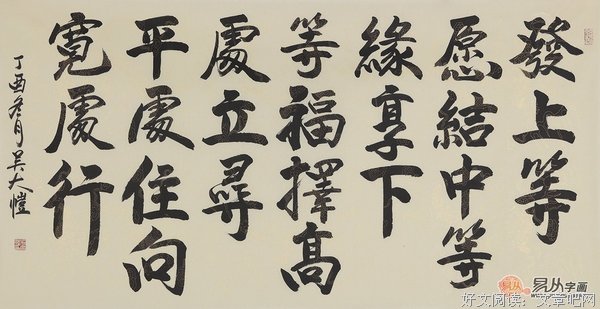 發上等
愿結中等
緣享下
等福擇高
處立尋
平處住向
寬處行
丁酉冬月吴大愷
易从字画
好文阅读：文章吧网